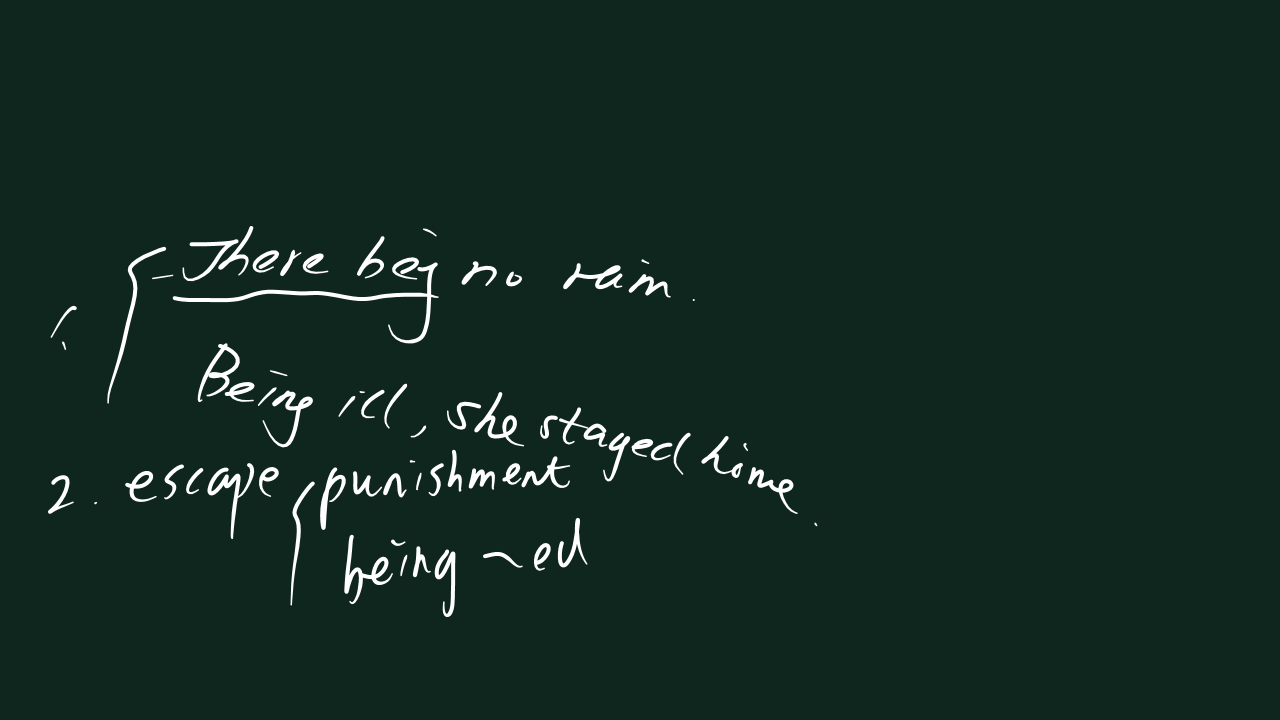 1. { There being no rain.
Being ill, she stayed home.
2. escape { punishment
being ~ed